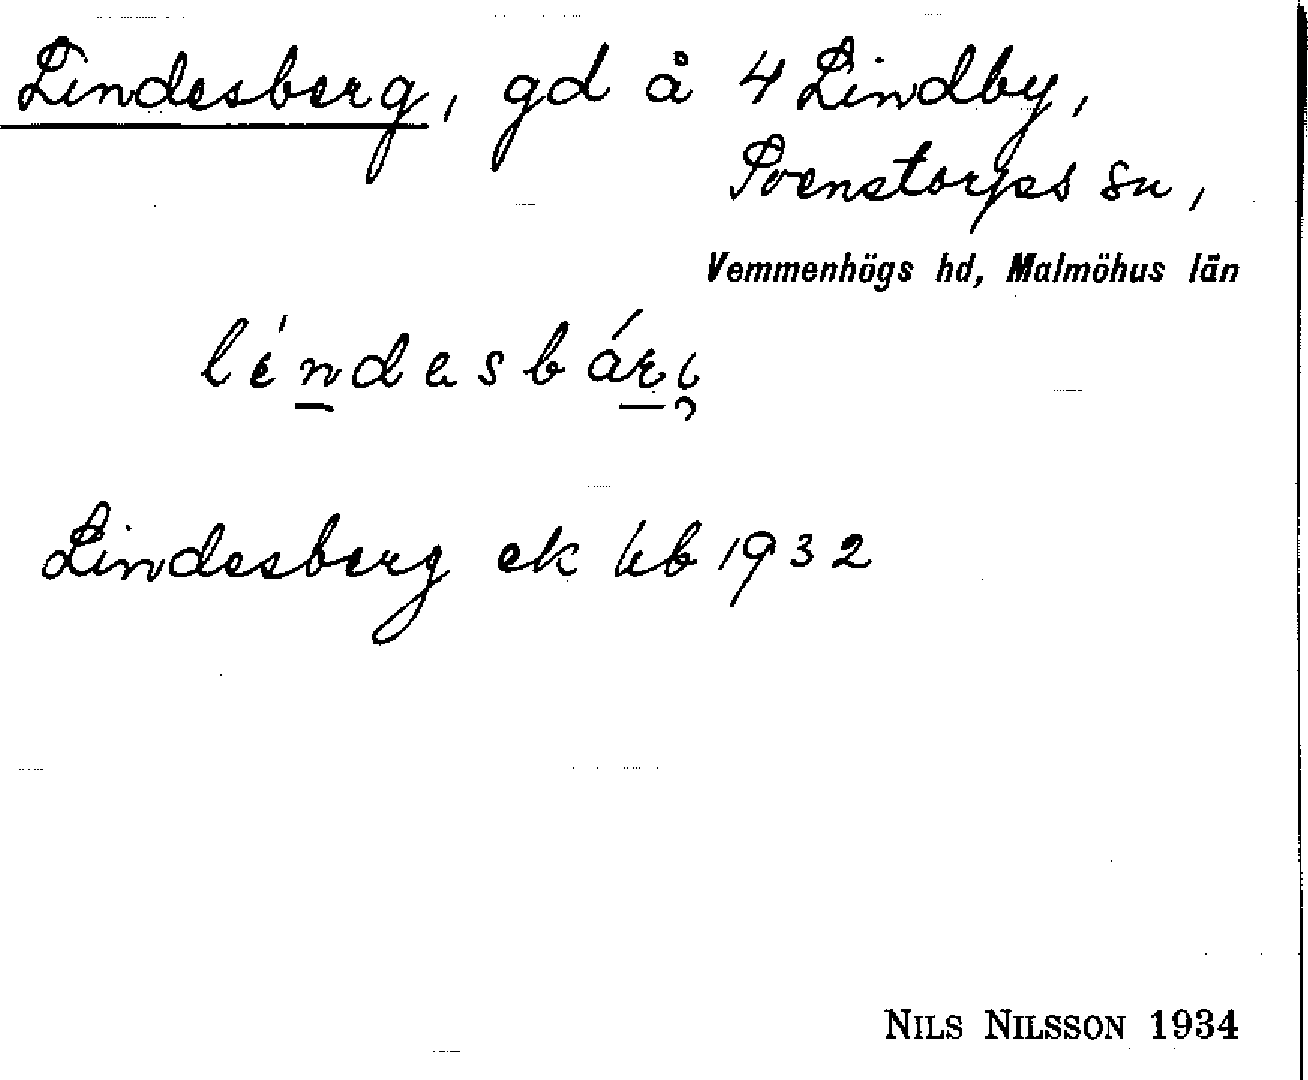 Lindesberg, gd å 4 Lindby,
Svenstorps sn,
Vemmenhögs hd, Malmöhus län
Lindesberg ek kb 1932
NILS NILSSON 1934